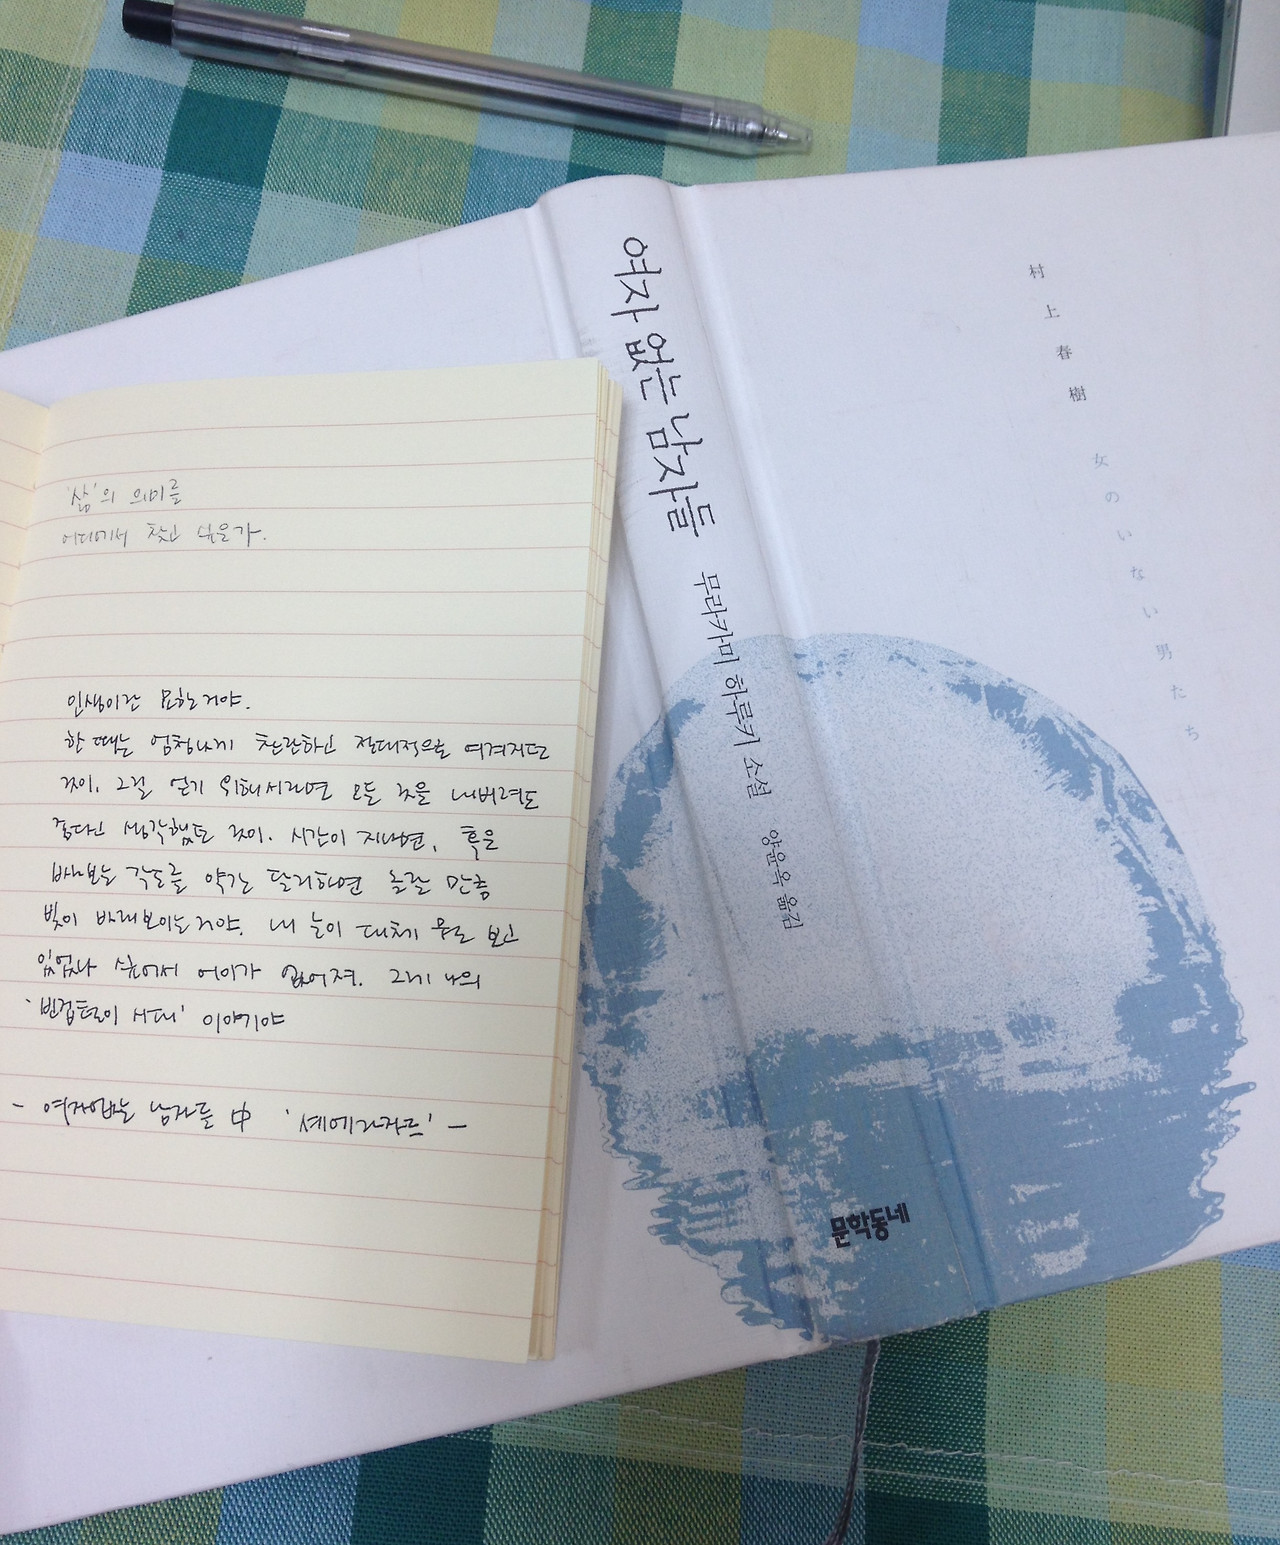 '삶'의 의미를
어디에서 찾고 싶은가.
인생이란 묘하는거야.
한 때는 엄청나게 찬란하고 절대적으로 여겨지던
것이. 그걸 얻기 위해서라면 모든 것을 내버려도
좋다고 생각했던 것이. 시간이 지나면, 혹은
바라보는 각도를 약간 달리하면 놀랄 만큼
빛이 바래보이는거야. 내 눈이 대체 뭘로 보고
있었나 싶어서 어이가 없어져. 그게 나의
'빈집털이 시대' 이야기야
- 여자없는 남자들 中 '셰에라자드' -
여자 없는 남자들 무라카미 하루키 소설 양윤옥 옮김
문학동네
村上春樹 女のいない男たち